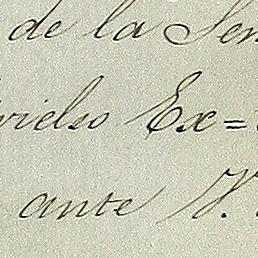 de la Sen
rielso Ex=
ante V.